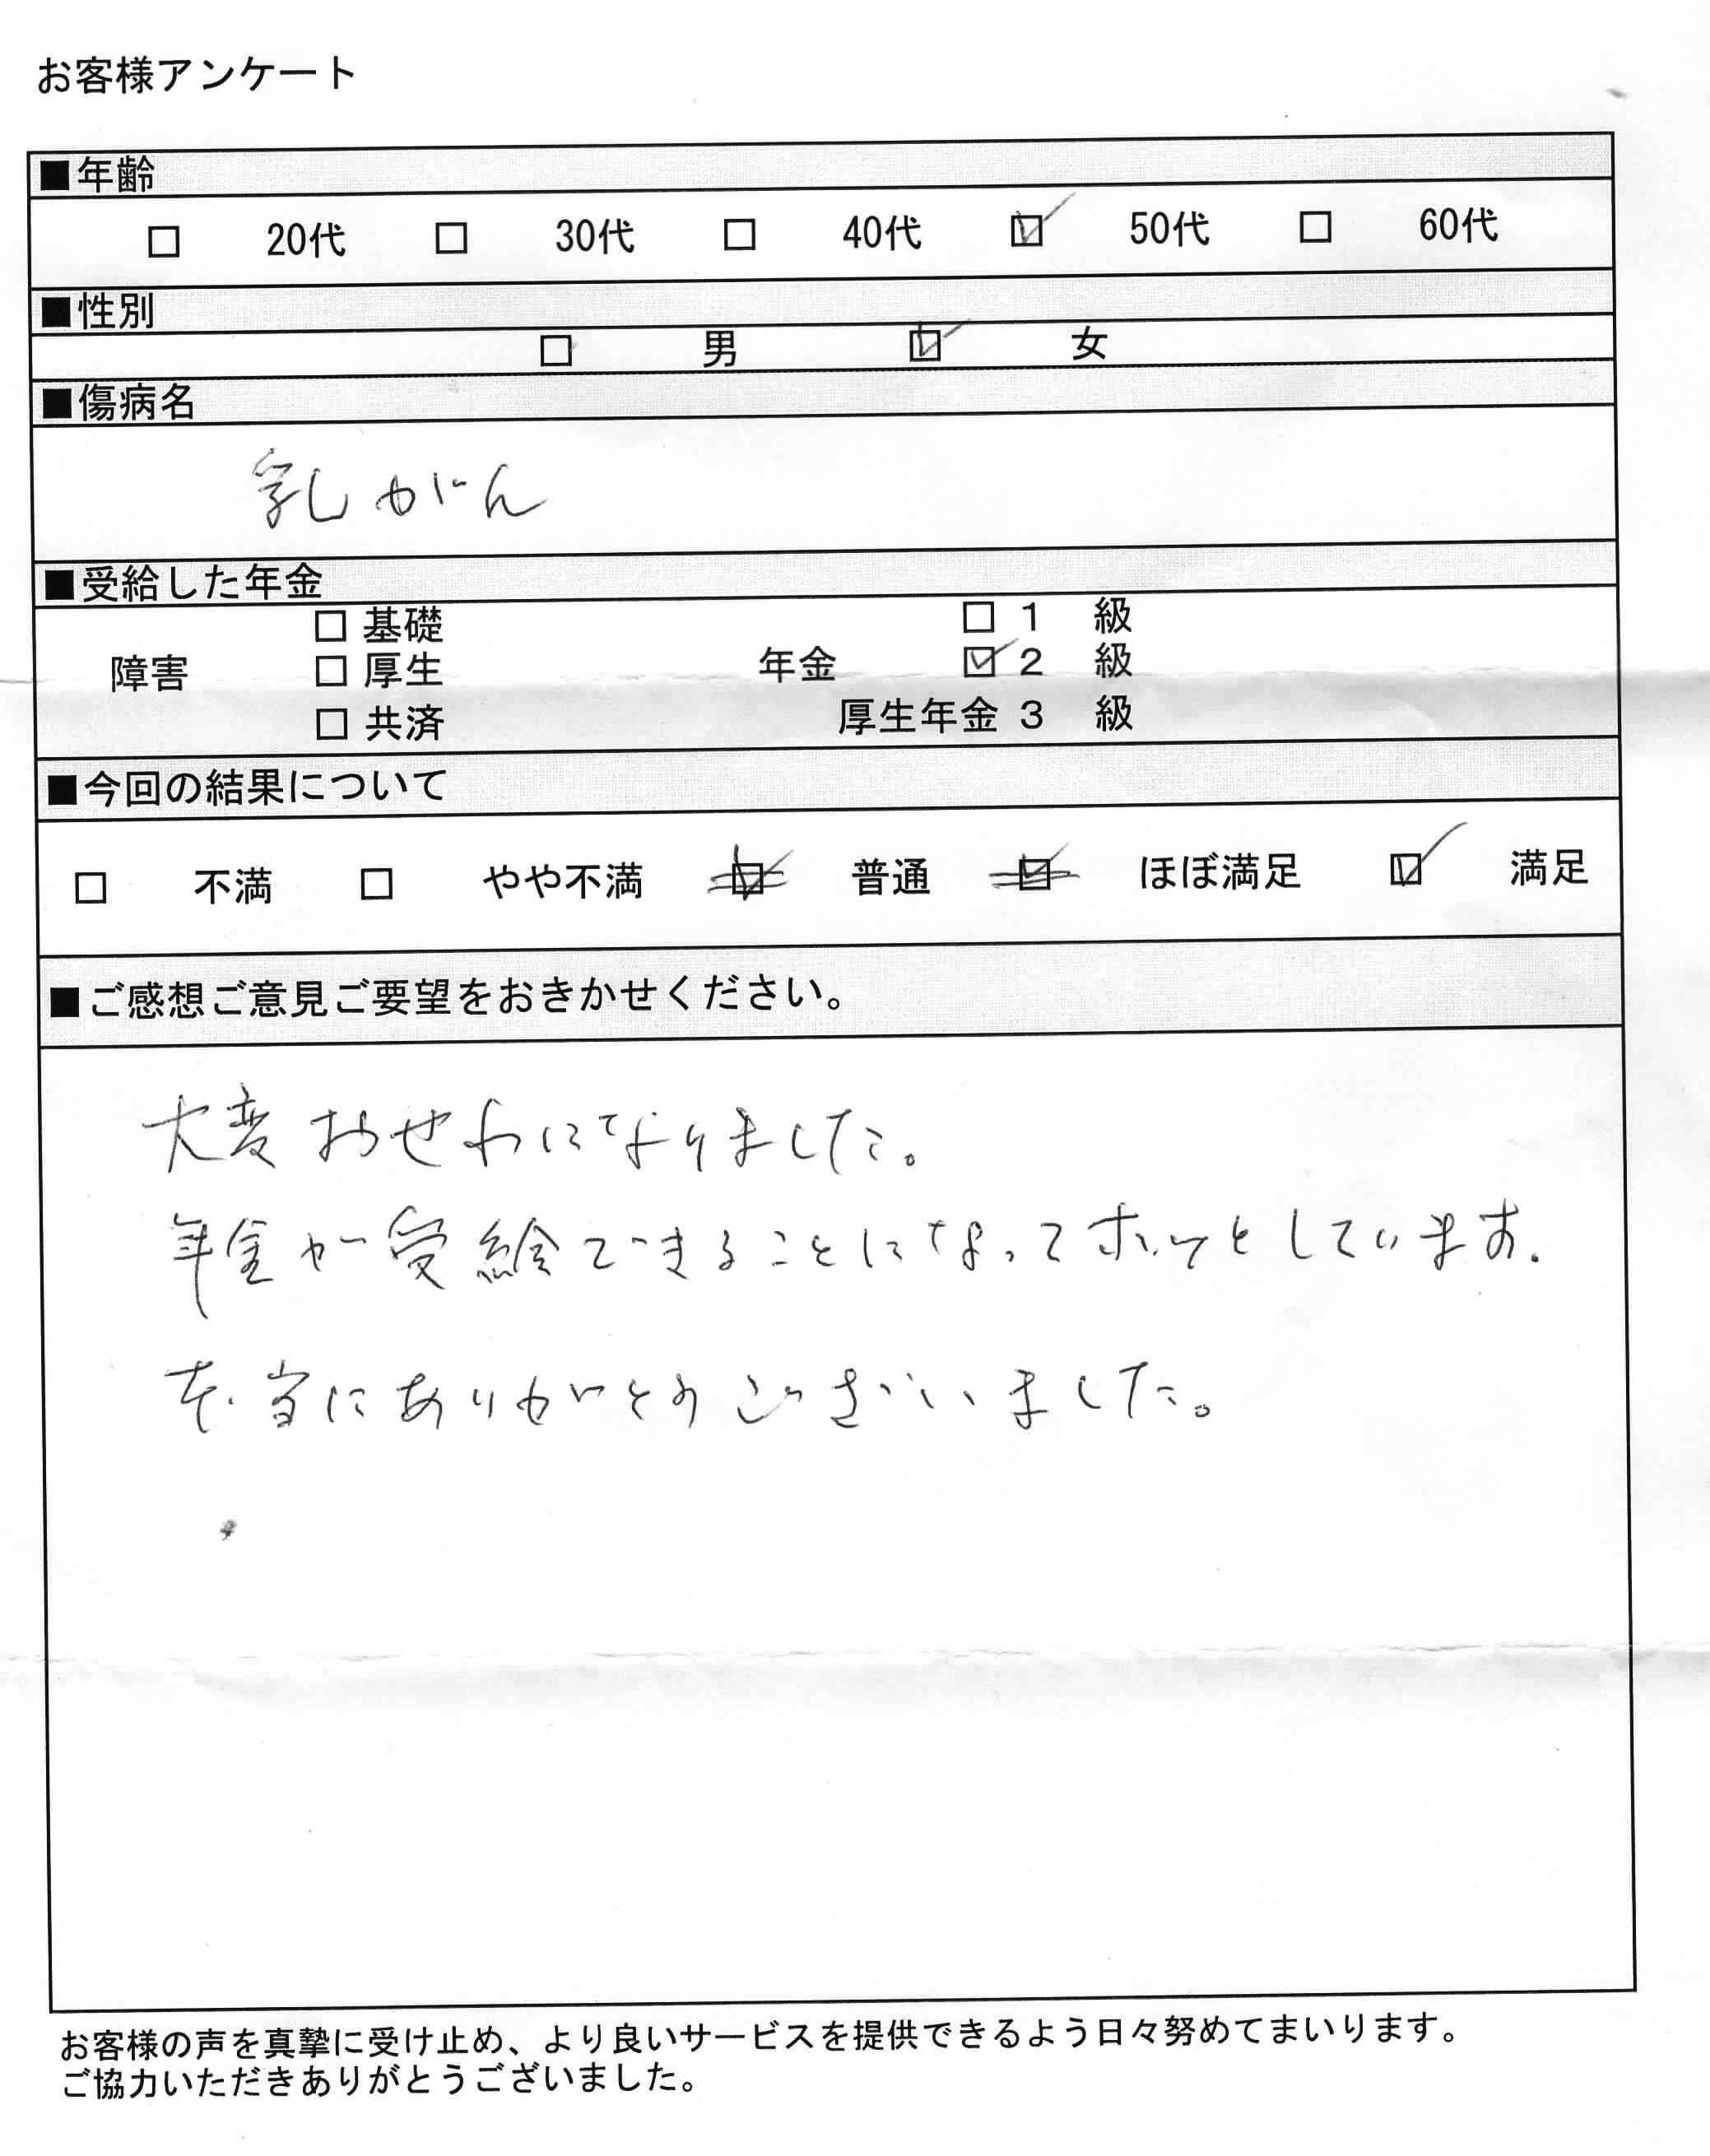 お客様アンケート
■年齢
□ 20代 □ 30代 □ 40代 ☑ 50代 □ 60代
■性別
□ 男 ☑ 女
■傷病名
乳がん
■受給した年金
□ 基礎 □ 1 級
障害 □ 厚生 年金 ☑ 2 級
□ 共済 厚生年金 3 級
■今回の結果について
□ 不満 □ やや不満 ☑ 普通 ☑ ほぼ満足 ☑ 満足
■ご感想ご意見ご要望をおきかせください。
大変おせわになりました。
年金が受給できることになってホッとしています.
本当にありがとうございました。
お客様の声を真摯に受け止め、より良いサービスを提供できるよう日々努めてまいります。
ご協力いただきありがとうございました。